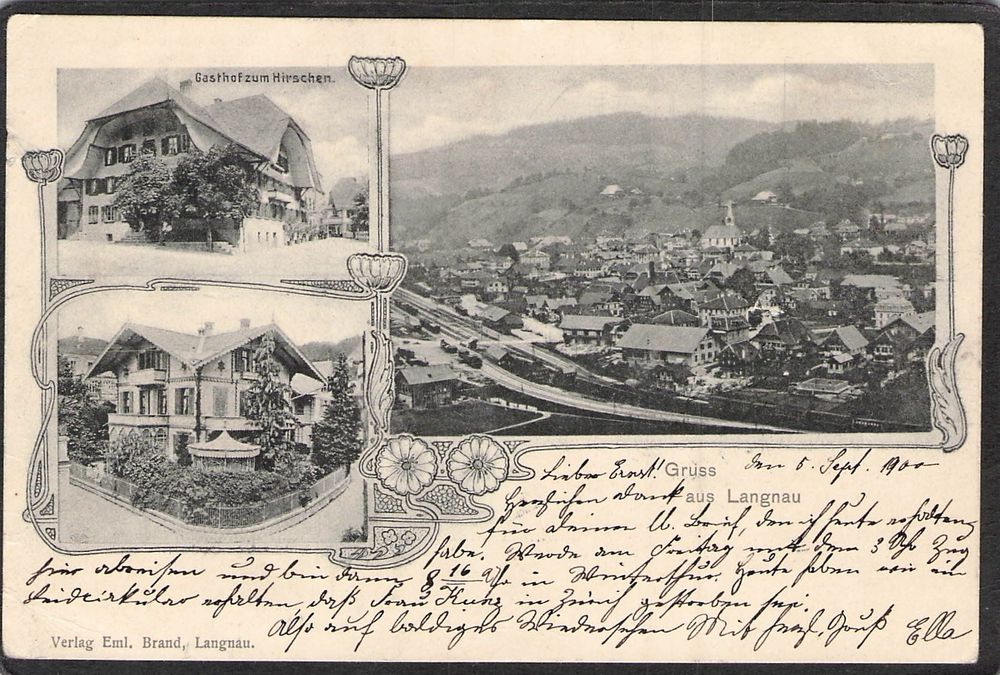 Gasthof zum Hirschen.
Gruss
aus Langnau
Lieber Ernst! den 5. Sept. 1900
Herzlichen Dank
für deinen l. Brief, den ich heute erhalten
habe. Werde am Freitag mit dem 3 Uhr Zug
hier abreisen und bin dann 8 16 Uhr in Winterthur. Heute haben wir ein
Leidcirkular erhalten, daß Frau Kunz in Zürich gestorben sei.
Also auf baldiges Wiedersehen Mit herzl. Gruß Ella
Verlag Eml. Brand, Langnau.